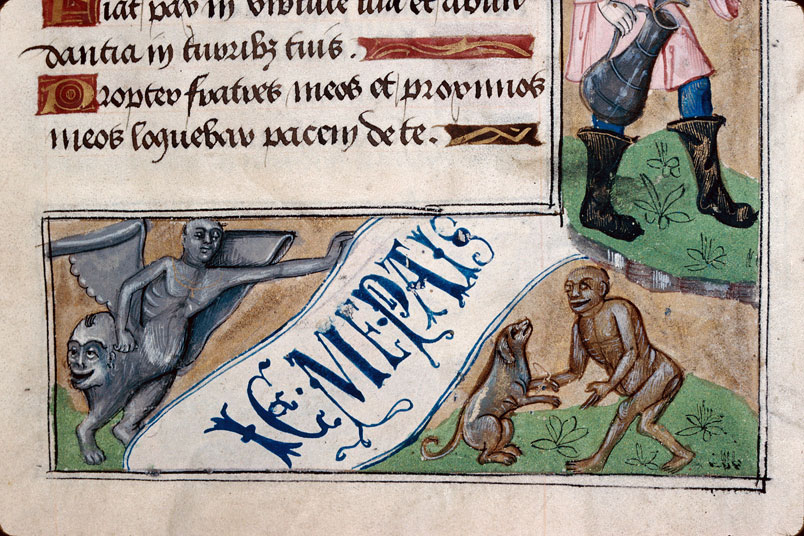 Fiat pax in virtute tua et abun
dantia in turribz tuis.
Propter fratres meos et proximos
meos loquebar pacem de te.
IE·ME·PAIS